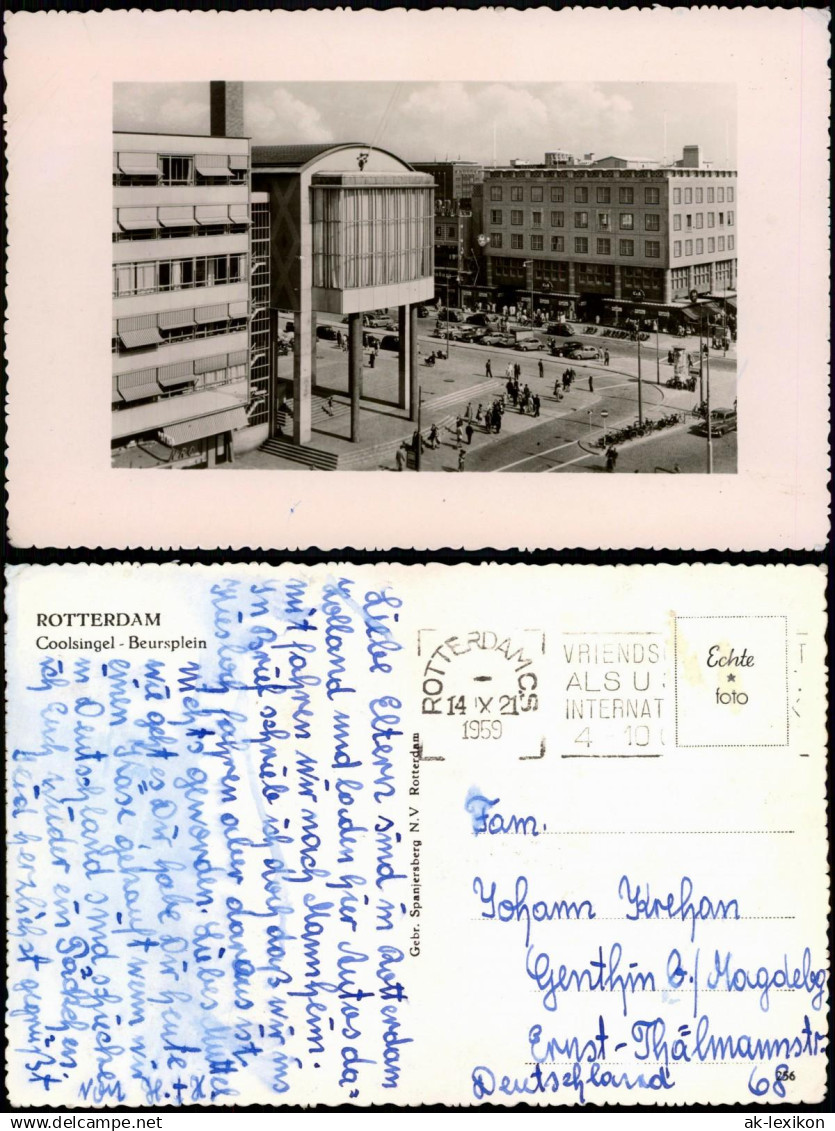 ROTTERDAM
Coolsingel - Beursplein
Liebe Eltern sind in Rotterdam
Holland und laden für Autos da=
mit fahren wir nach Mannheim.
In Brief schrieb ich doch daß wir ins
fahren aber daraus ist
nichts geworden. Liebes Muttel
wie geht es Dir habe Dir heute
einen Käse gekauft wenn wir
in Deutschland sind schicken
ich Euch wieder ein Päckchen
Seid herzlichst gegrüßt
von H. + H.
Gebr. Spanjersberg N.V Rotterdam
ROTTERDAM CS
14 IX 21
1959
VRIENDS
ALS U
INTERNAT
4 - 10
Echte
*
foto
Fam.
Johann Krehan
Genthin B./Magdebg
Ernst-Thälmannstr
Deutschland 68
256
www.ak-ansichtskarten.de
ak-lexikon